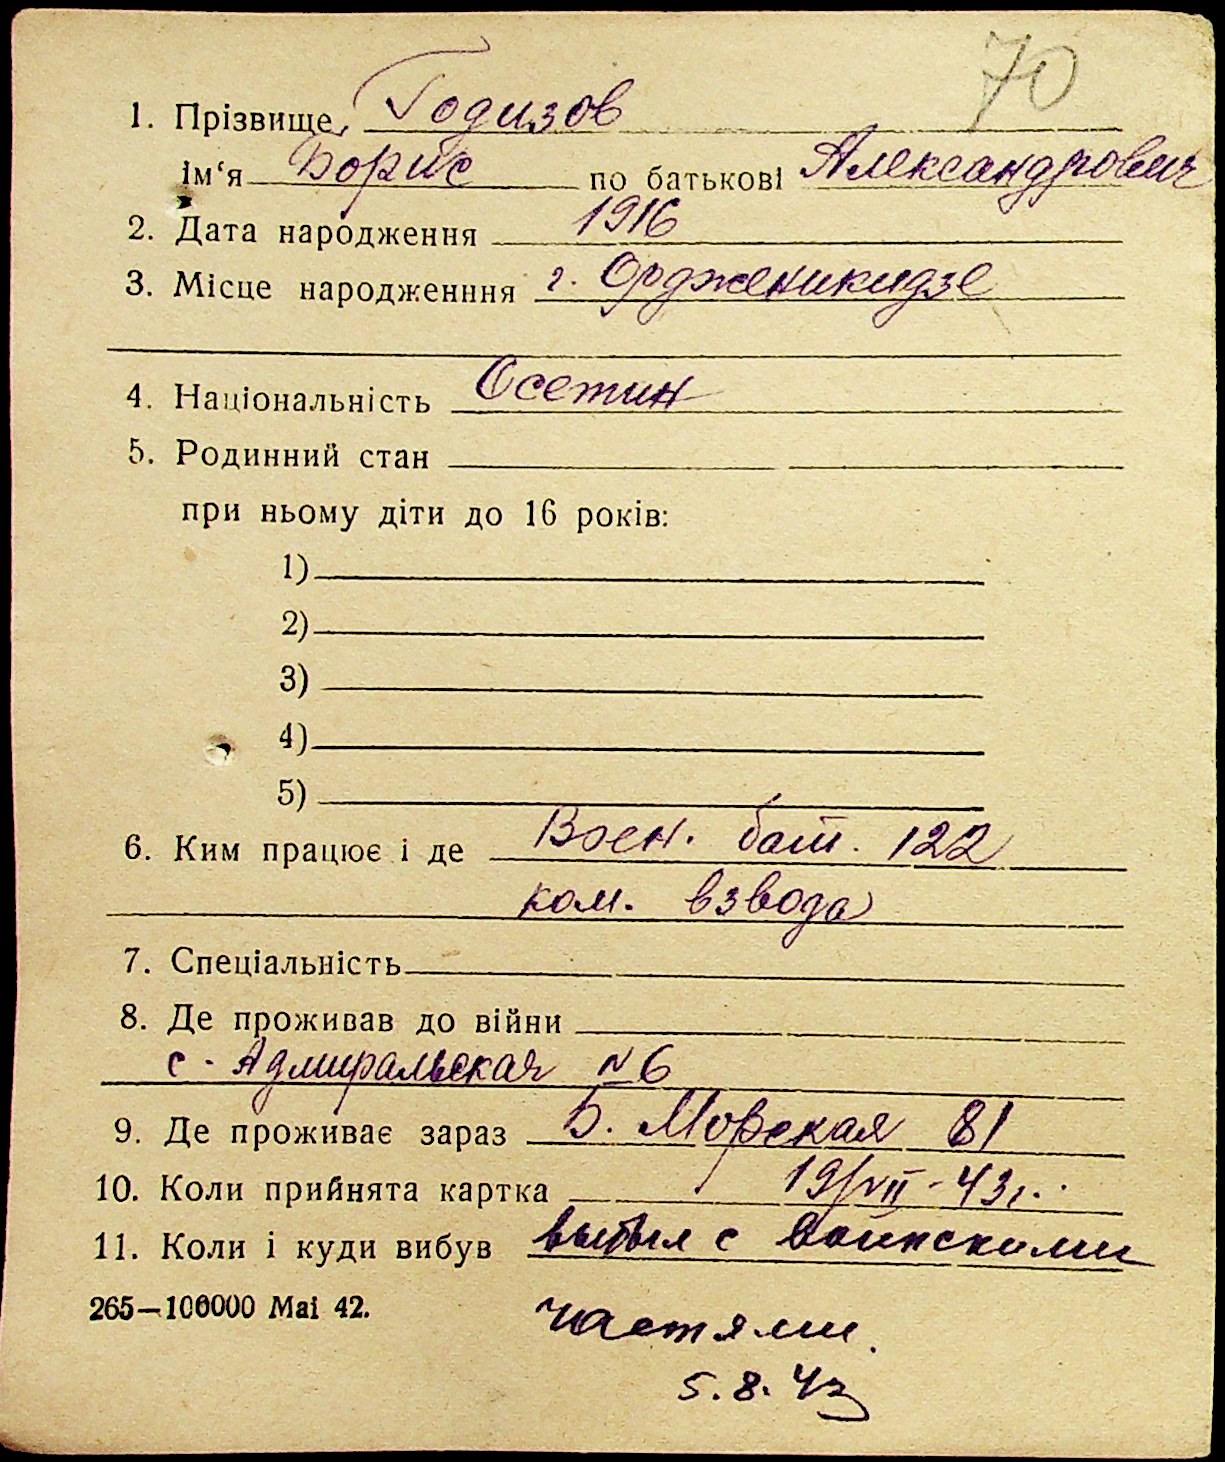 70
1. Прізвище Годизов
ім‘я Борис по батькові Александрович
2. Дата народження 1916
3. Місце народженння г. Ордженикидзе
4. Національність Осетин
5. Родинний стан
при ньому діти до 16 років:
1)
2)
3)
4)
5)
6. Ким працює і де Воен. бат. 122
ком. взвода
7. Спеціальність
8. Де проживав до війни
с. Адмиральская №6
9. Де проживає зараз Б. Морская 81
10. Коли прийнята картка 19/VII-43г.
11. Коли і куди вибув выбыл с воинскими
265—100000 Mai 42.
частями.
5.8.43